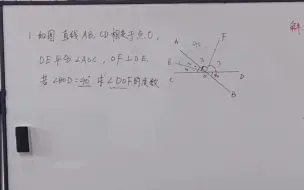 1. 如图 直线 AB, CD 相交于点 O,
OE平分∠AOC, OF⊥OE.
若∠BOD=40° 求∠DOF的度数
解
A
F
E
C
D
B